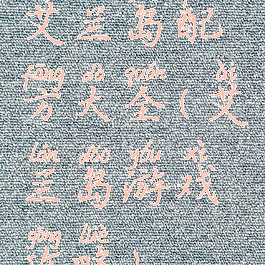 艾兰岛配
fāng dà quán ( ài
方大全(艾
lán dǎo yóu xì
兰岛游戏
gōng lüè
攻略)